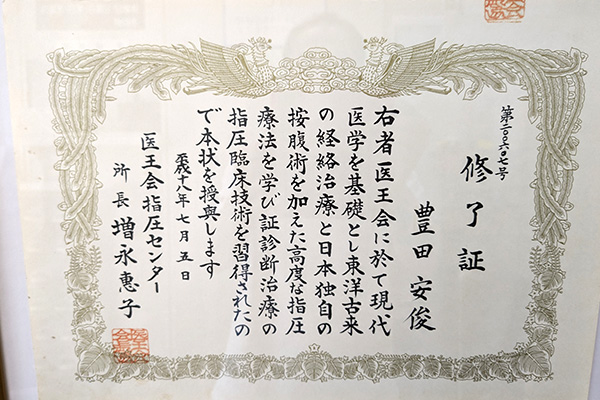 第二〇〇六〇七号
修了証
豊田安俊
右者医王会に於て現代
医学を基礎とし東洋古来
の経絡治療と日本独自の
按腹術を加えた高度な指圧
療法を学び証診断治療の
指圧臨床技術を習得されたの
で本状を授與します
平成十八年七月五日
医王会指圧センター
所長 増永恵子